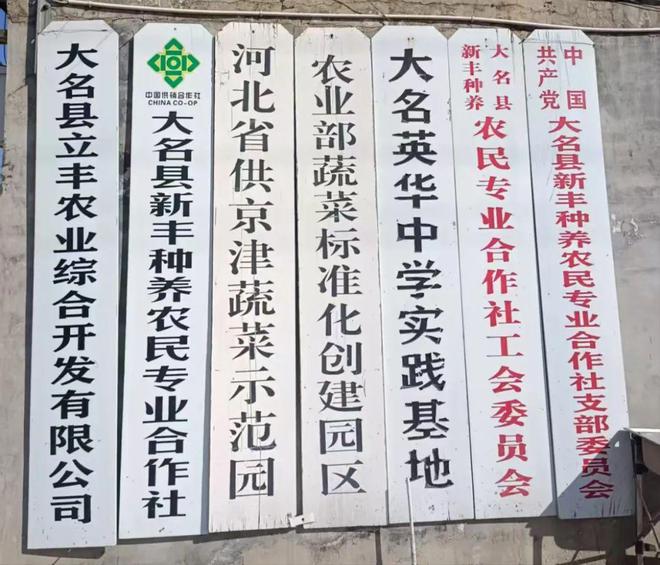 大名县立丰农业综合开发有限公司
中国供销合作社
CHINA CO-OP
大名县新丰种养农民专业合作社
河北省供京津蔬菜示范园
农业部蔬菜标准化创建园区
大名英华中学实践基地
大名县
新丰种养
农民专业合作社工会委员会
中国
共产党
大名县新丰种养农民专业合作社支部委员会